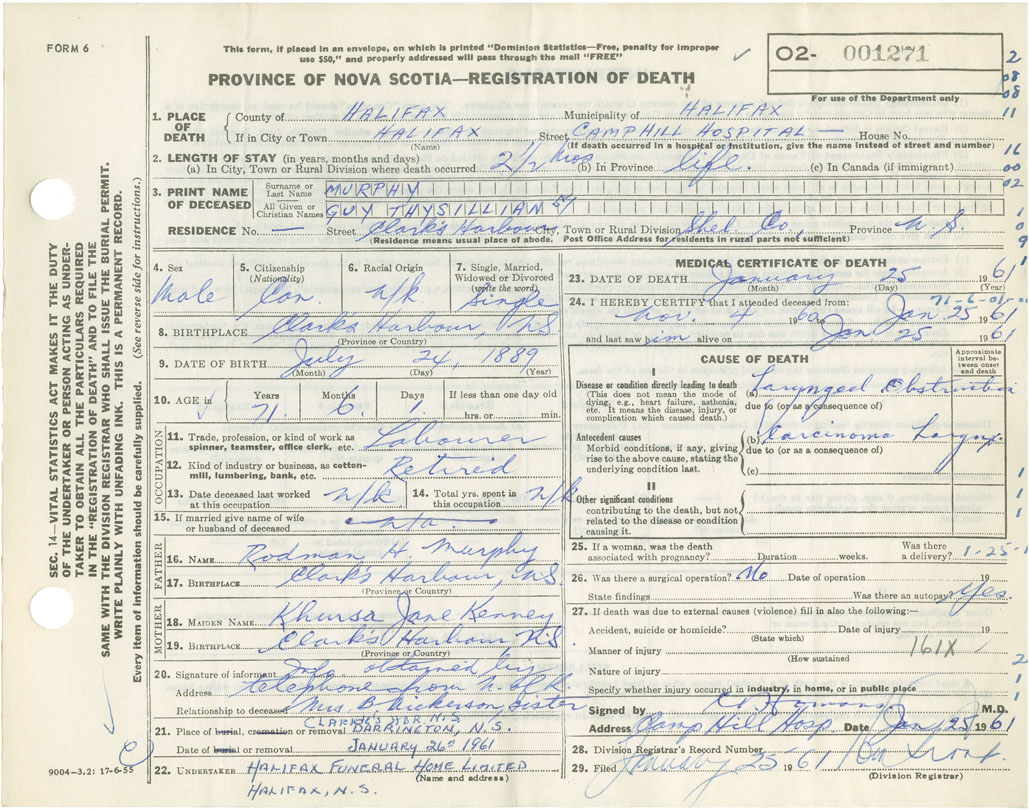 FORM 6
This form, if placed in an envelope, on which is printed "Dominion Statistics—Free, penalty for improper
use $50," and properly addressed will pass through the mail "FREE"
PROVINCE OF NOVA SCOTIA—REGISTRATION OF DEATH
02- 001271
For use of the Department only
2
08
08
11
16
00
02
1. PLACE OF DEATH
County of HALIFAX Municipality of HALIFAX
If in City or Town HALIFAX Street CAMPHILL HOSPITAL — House No.
(Name) (If death occurred in a hospital or institution, give the name instead of street and number)
2. LENGTH OF STAY (in years, months and days)
(a) In City, Town or Rural Division where death occurred 2 1/2 mos (b) In Province life. (c) In Canada (if immigrant)
3. PRINT NAME OF DECEASED
Surname or Last Name MURPHY
All Given or Christian Names GUY THYSILLIAN
RESIDENCE No. — Street Clark's Harbour City, Town or Rural Division Shel Co, Province N.S.
(Residence means usual place of abode. Post Office Address for residents in rural parts not sufficient)
4. Sex Male
5. Citizenship (Nationality) Can.
6. Racial Origin n/k
7. Single, Married, Widowed or Divorced (write the word) Single
8. BIRTHPLACE Clark's Harbour, NS
(Province or Country)
9. DATE OF BIRTH July 24, 1889
(Month) (Day) (Year)
10. AGE in Years 71. Months 6 Days 1 If less than one day old
hrs. or min.
OCCUPATION
11. Trade, profession, or kind of work as spinner, teamster, office clerk, etc. Labourer
12. Kind of industry or business, as cotton-mill, lumbering, bank, etc. Retired
13. Date deceased last worked at this occupation n/k 14. Total yrs. spent in this occupation n/k
15. If married give name of wife or husband of deceased
FATHER
16. NAME Rodman H. Murphy
17. BIRTHPLACE Clark's Harbour, NS
(Province or Country)
MOTHER
18. MAIDEN NAME Khursa Jane Kenney
19. BIRTHPLACE Clark's Harbour NS
(Province or Country)
20. Signature of informant Info obtained by
Address telephone from N. of K.
Relationship to deceased Mrs. B. Nickerson, sister
CLARK'S HBR. N.S.
21. Place of burial, cremation or removal BARRINGTON, N.S.
Date of burial or removal JANUARY 26th 1961
22. UNDERTAKER HALIFAX FUNERAL HOME LIMITED
(Name and address)
HALIFAX, N.S.
MEDICAL CERTIFICATE OF DEATH
23. DATE OF DEATH January 25 1961
(Month) (Day) (Year)
71-6-01-
24. I HEREBY CERTIFY that I attended deceased from:
Nov. 4 1960 to Jan. 25 1961
and last saw him alive on Jan 25 1961
CAUSE OF DEATH
Approximate interval between onset and death
I
Disease or condition directly leading to death
(This does not mean the mode of dying, e.g., heart failure, asthenia, etc. It means the disease, injury, or complication which caused death.)
(a) Laryngeal Obstruction
due to (or as a consequence of)
Antecedent causes
Morbid conditions, if any, giving rise to the above cause, stating the underlying condition last.
(b) Carcinoma Larynx.
due to (or as a consequence of)
(c)
II
Other significant conditions
contributing to the death, but not related to the disease or condition causing it.
25. If a woman, was the death associated with pregnancy? Duration weeks. Was there a delivery? 1-25-1
26. Was there a surgical operation? No Date of operation 19
State findings Was there an autopsy? Yes.
27. If death was due to external causes (violence) fill in also the following:—
Accident, suicide or homicide? Date of injury 19
(State which)
Manner of injury 161X
(How sustained
Nature of injury
Specify whether injury occurred in industry, in home, or in public place
Signed by M.D.
Address Camp Hill Hosp. Date Jan 25 1961
28. Division Registrar's Record Number
29. Filed January 25 1961
(Division Registrar)
SEC. 14—VITAL STATISTICS ACT MAKES IT THE DUTY
OF THE UNDERTAKER OR PERSON ACTING AS UNDER-
TAKER TO OBTAIN ALL THE PARTICULARS REQUIRED
IN THE "REGISTRATION OF DEATH" AND TO FILE THE
SAME WITH THE DIVISION REGISTRAR WHO SHALL ISSUE THE BURIAL PERMIT.
WRITE PLAINLY WITH UNFADING INK. THIS IS A PERMANENT RECORD.
Every item of information should be carefully supplied. (See reverse side for instructions.)
9004-3.2: 17-6-55